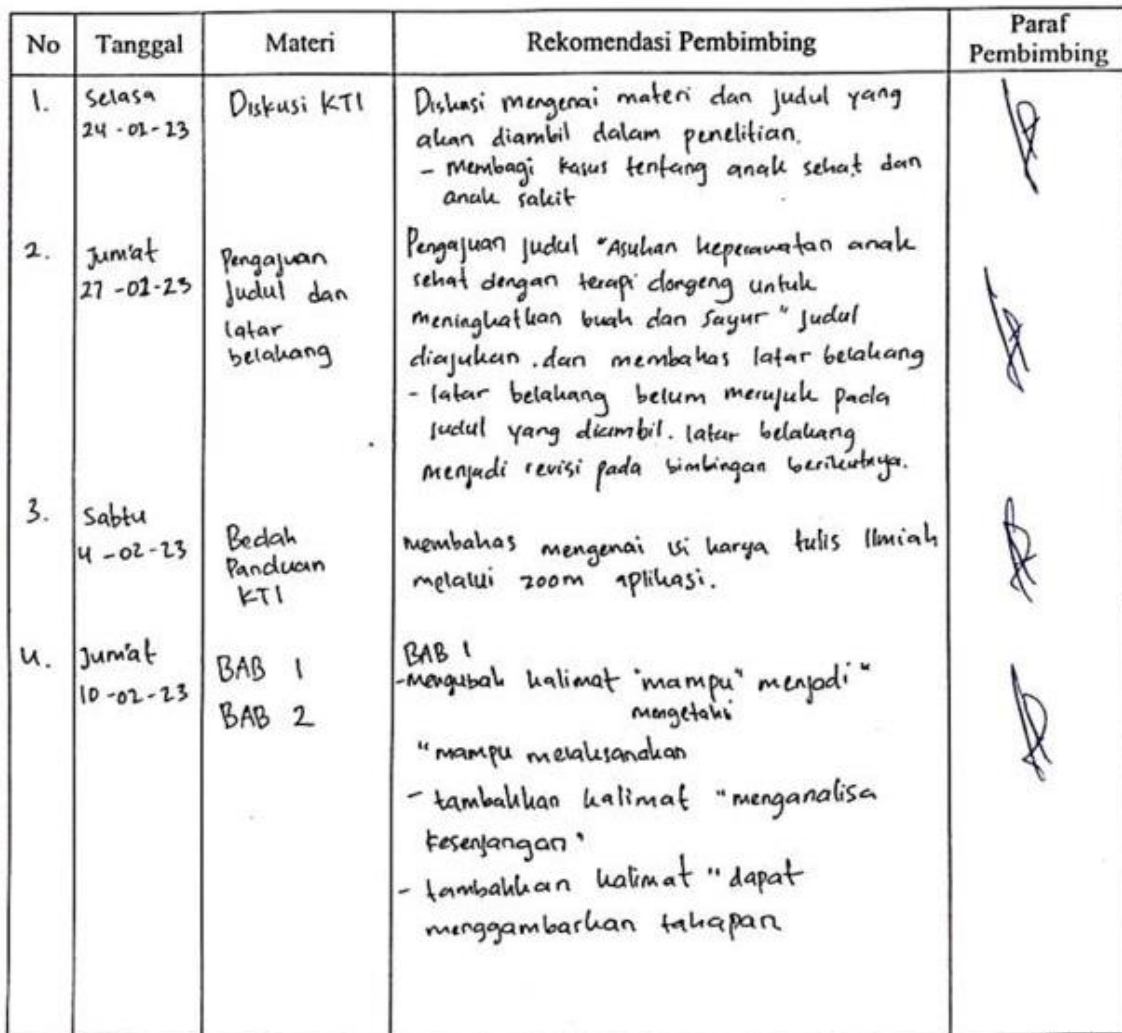 No Tanggal Materi Rekomendasi Pembimbing Paraf Pembimbing
1. Selasa
24-01-23
Diskusi KTI
Diskusi mengenai materi dan judul yang
akan diambil dalam penelitian.
- membagi kasus tentang anak sehat dan
anak sakit
2. Jum'at
27-01-23
Pengajuan
Judul dan
latar
belakang
Pengajuan judul "Asuhan keperawatan anak
sehat dengan terapi dongeng untuk
meningkatkan buah dan sayur" judul
diajukan. dan membahas latar belakang
- latar belakang belum merujuk pada
judul yang diambil. latar belakang
menjadi revisi pada bimbingan berikutnya.
3. Sabtu
4-02-23
Bedah
Panduan
KTI
membahas mengenai isi karya tulis Ilmiah
melalui zoom aplikasi.
4. Jum'at
10-02-23
BAB 1
BAB 2
BAB 1
- mengubah kalimat "mampu" menjadi "
mengetahi
"mampu melaksanakan
- tambahkan kalimat "menganalisa
kesenjangan"
- tambahkan kalimat "dapat
menggambarkan tahapan